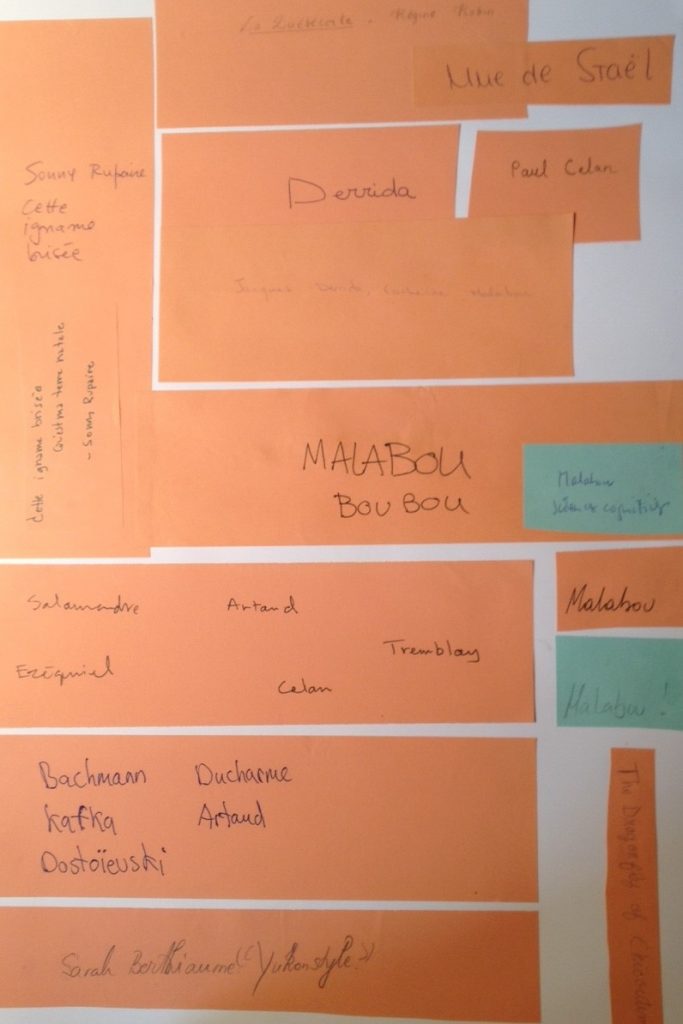 La Québécoite. Régine Robin
Mme de Staël
Sonny Rupaire
Cette
igname
brisée
Derrida
Paul Celan
Jacques Derrida, Catherine Malabou
Cette igname brisée
qu'est ma terre natale
- Sonny Rupaire
MALABOU
BOUBOU
Malabou
sciences cognitives
Salamandre
Artaud
Tremblay
Ezéquiel
Celan
Malabou
Malabou !
Bachmann
Ducharme
Kafka
Artaud
Dostoïevski
The Dragonfly of
Sarah Berthiaume «Yukonstyle»